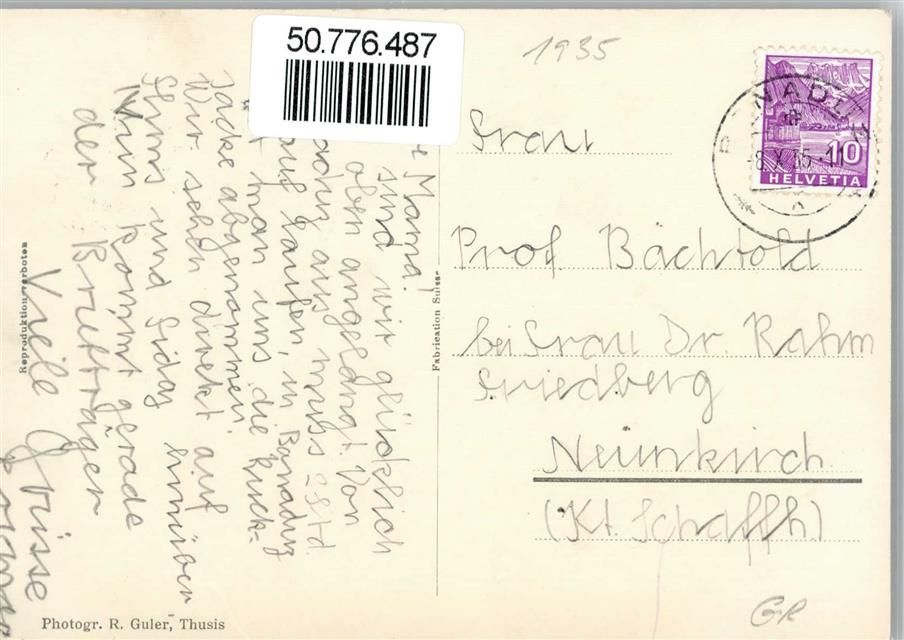 50.776.487
1935
BONADUZ
10
HELVETIA
Frau
Prof. Bächtold
bei Frau Dr Rahm
Friedberg
Neunkirch
(Kt. Schaffh)
GR
Mama!
sind wir glücklich
oben angelangt. Von
aus muss
auf laufen, in Bonaduz
man uns die Ruck-
säcke abgenommen.
Wir sehen direkt auf
Thusis und hinüber
Nun kommt gerade
der Briefträger
Viele Grüsse
Reproduktion verboten
Fabrication Suisse
Photogr. R. Guler, Thusis